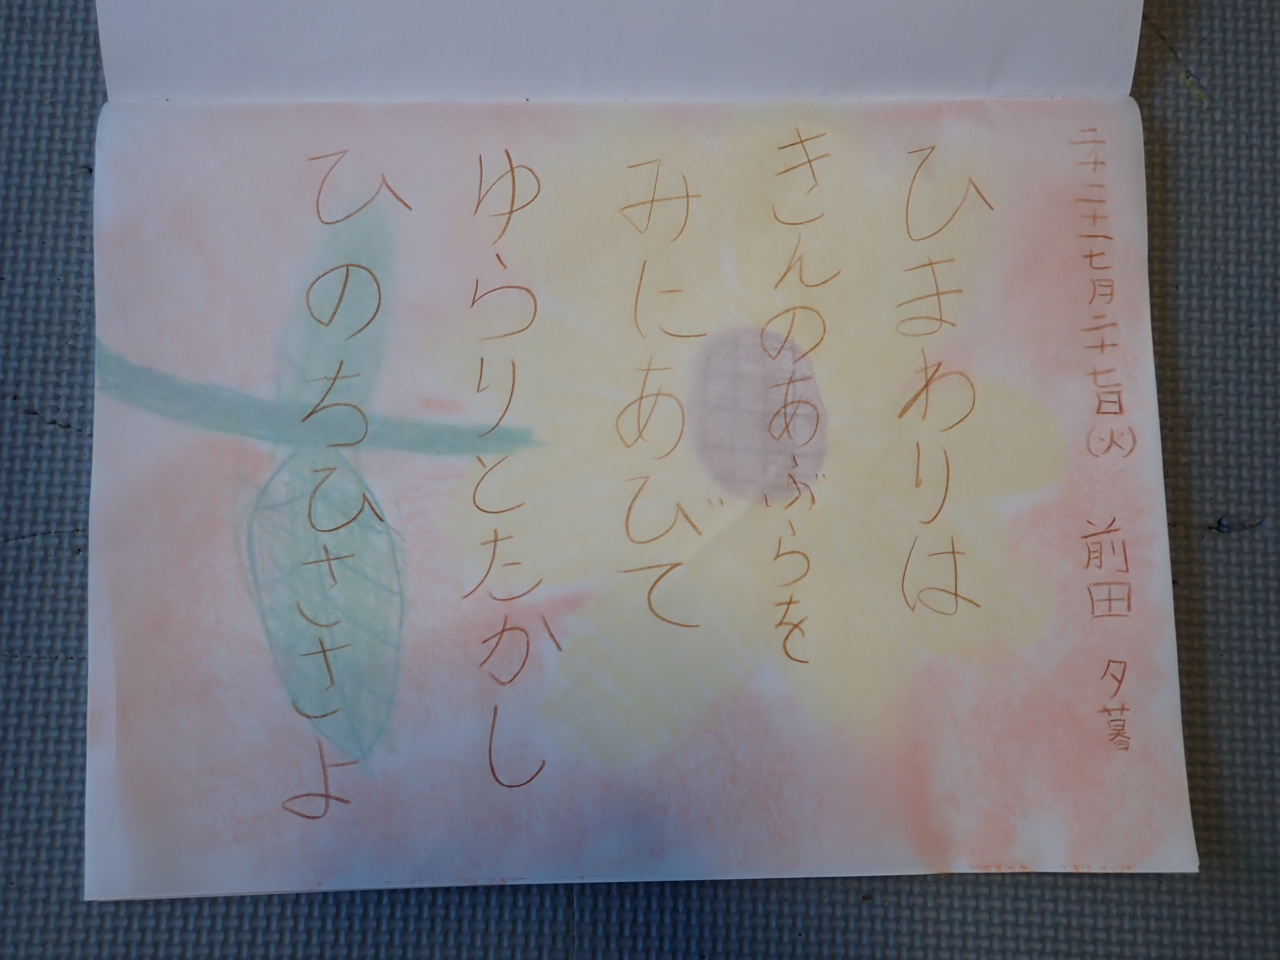 二千二十一七月二十七日(火) 前田 夕暮
ひまわりは
きんのあぶらを
みにあびて
ゆらりとたかし
ひのちひささよ